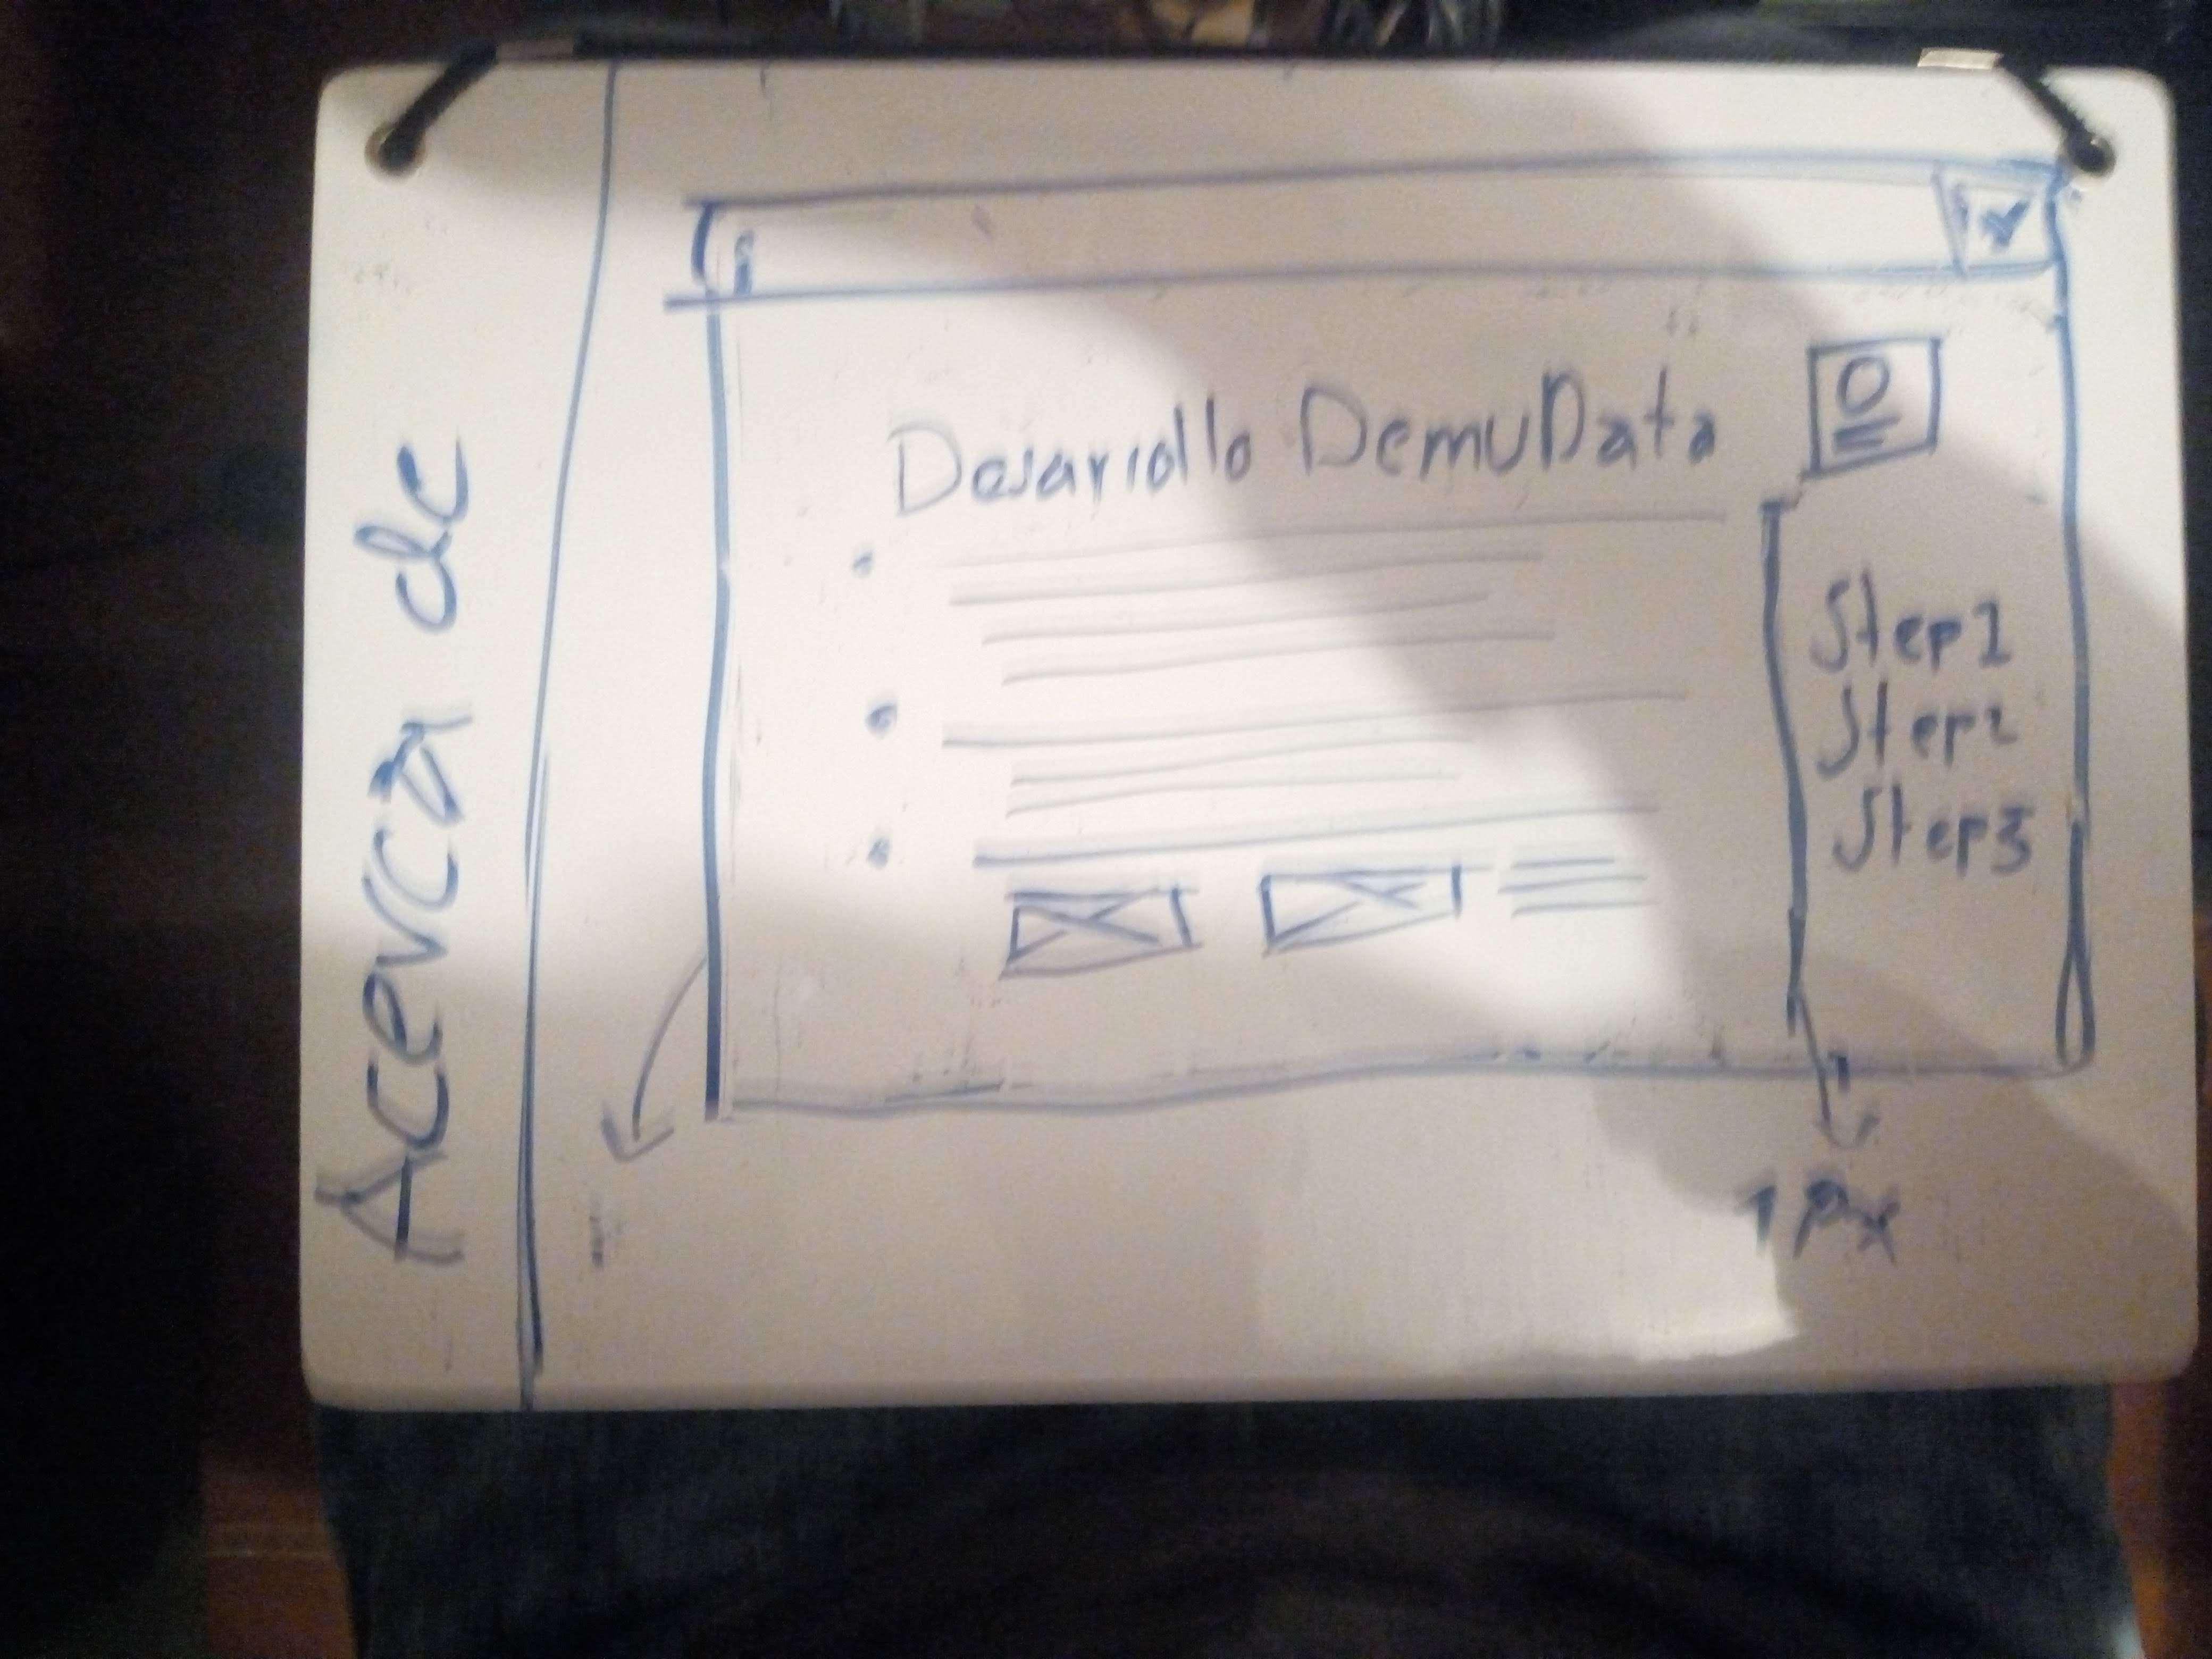 Acerca de
Desarrollo DemuData
Step1
Step2
Step3
1px